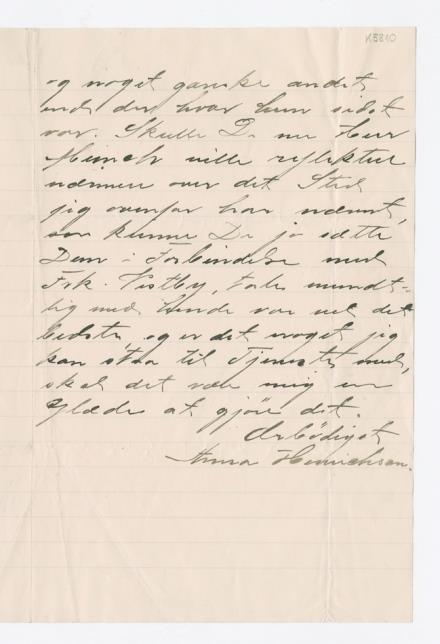 K5810
og noget ganske andet
end der hvor hun sidst
var. Skulle De nu Herr
Münch ville reflektere
nærmere over det Sted
jeg ovenfor har nævnt,
saa kunne De jo sætte
Dem i Forbindelse med
Frk. Vestby, tale mundt-
lig med hende var vel det
bedste, og er det noget jeg
kan staa til Tjeneste med,
skal det være mig en
Glæde at gjøre det.
Ærbødigst
Anna Henrichsen.